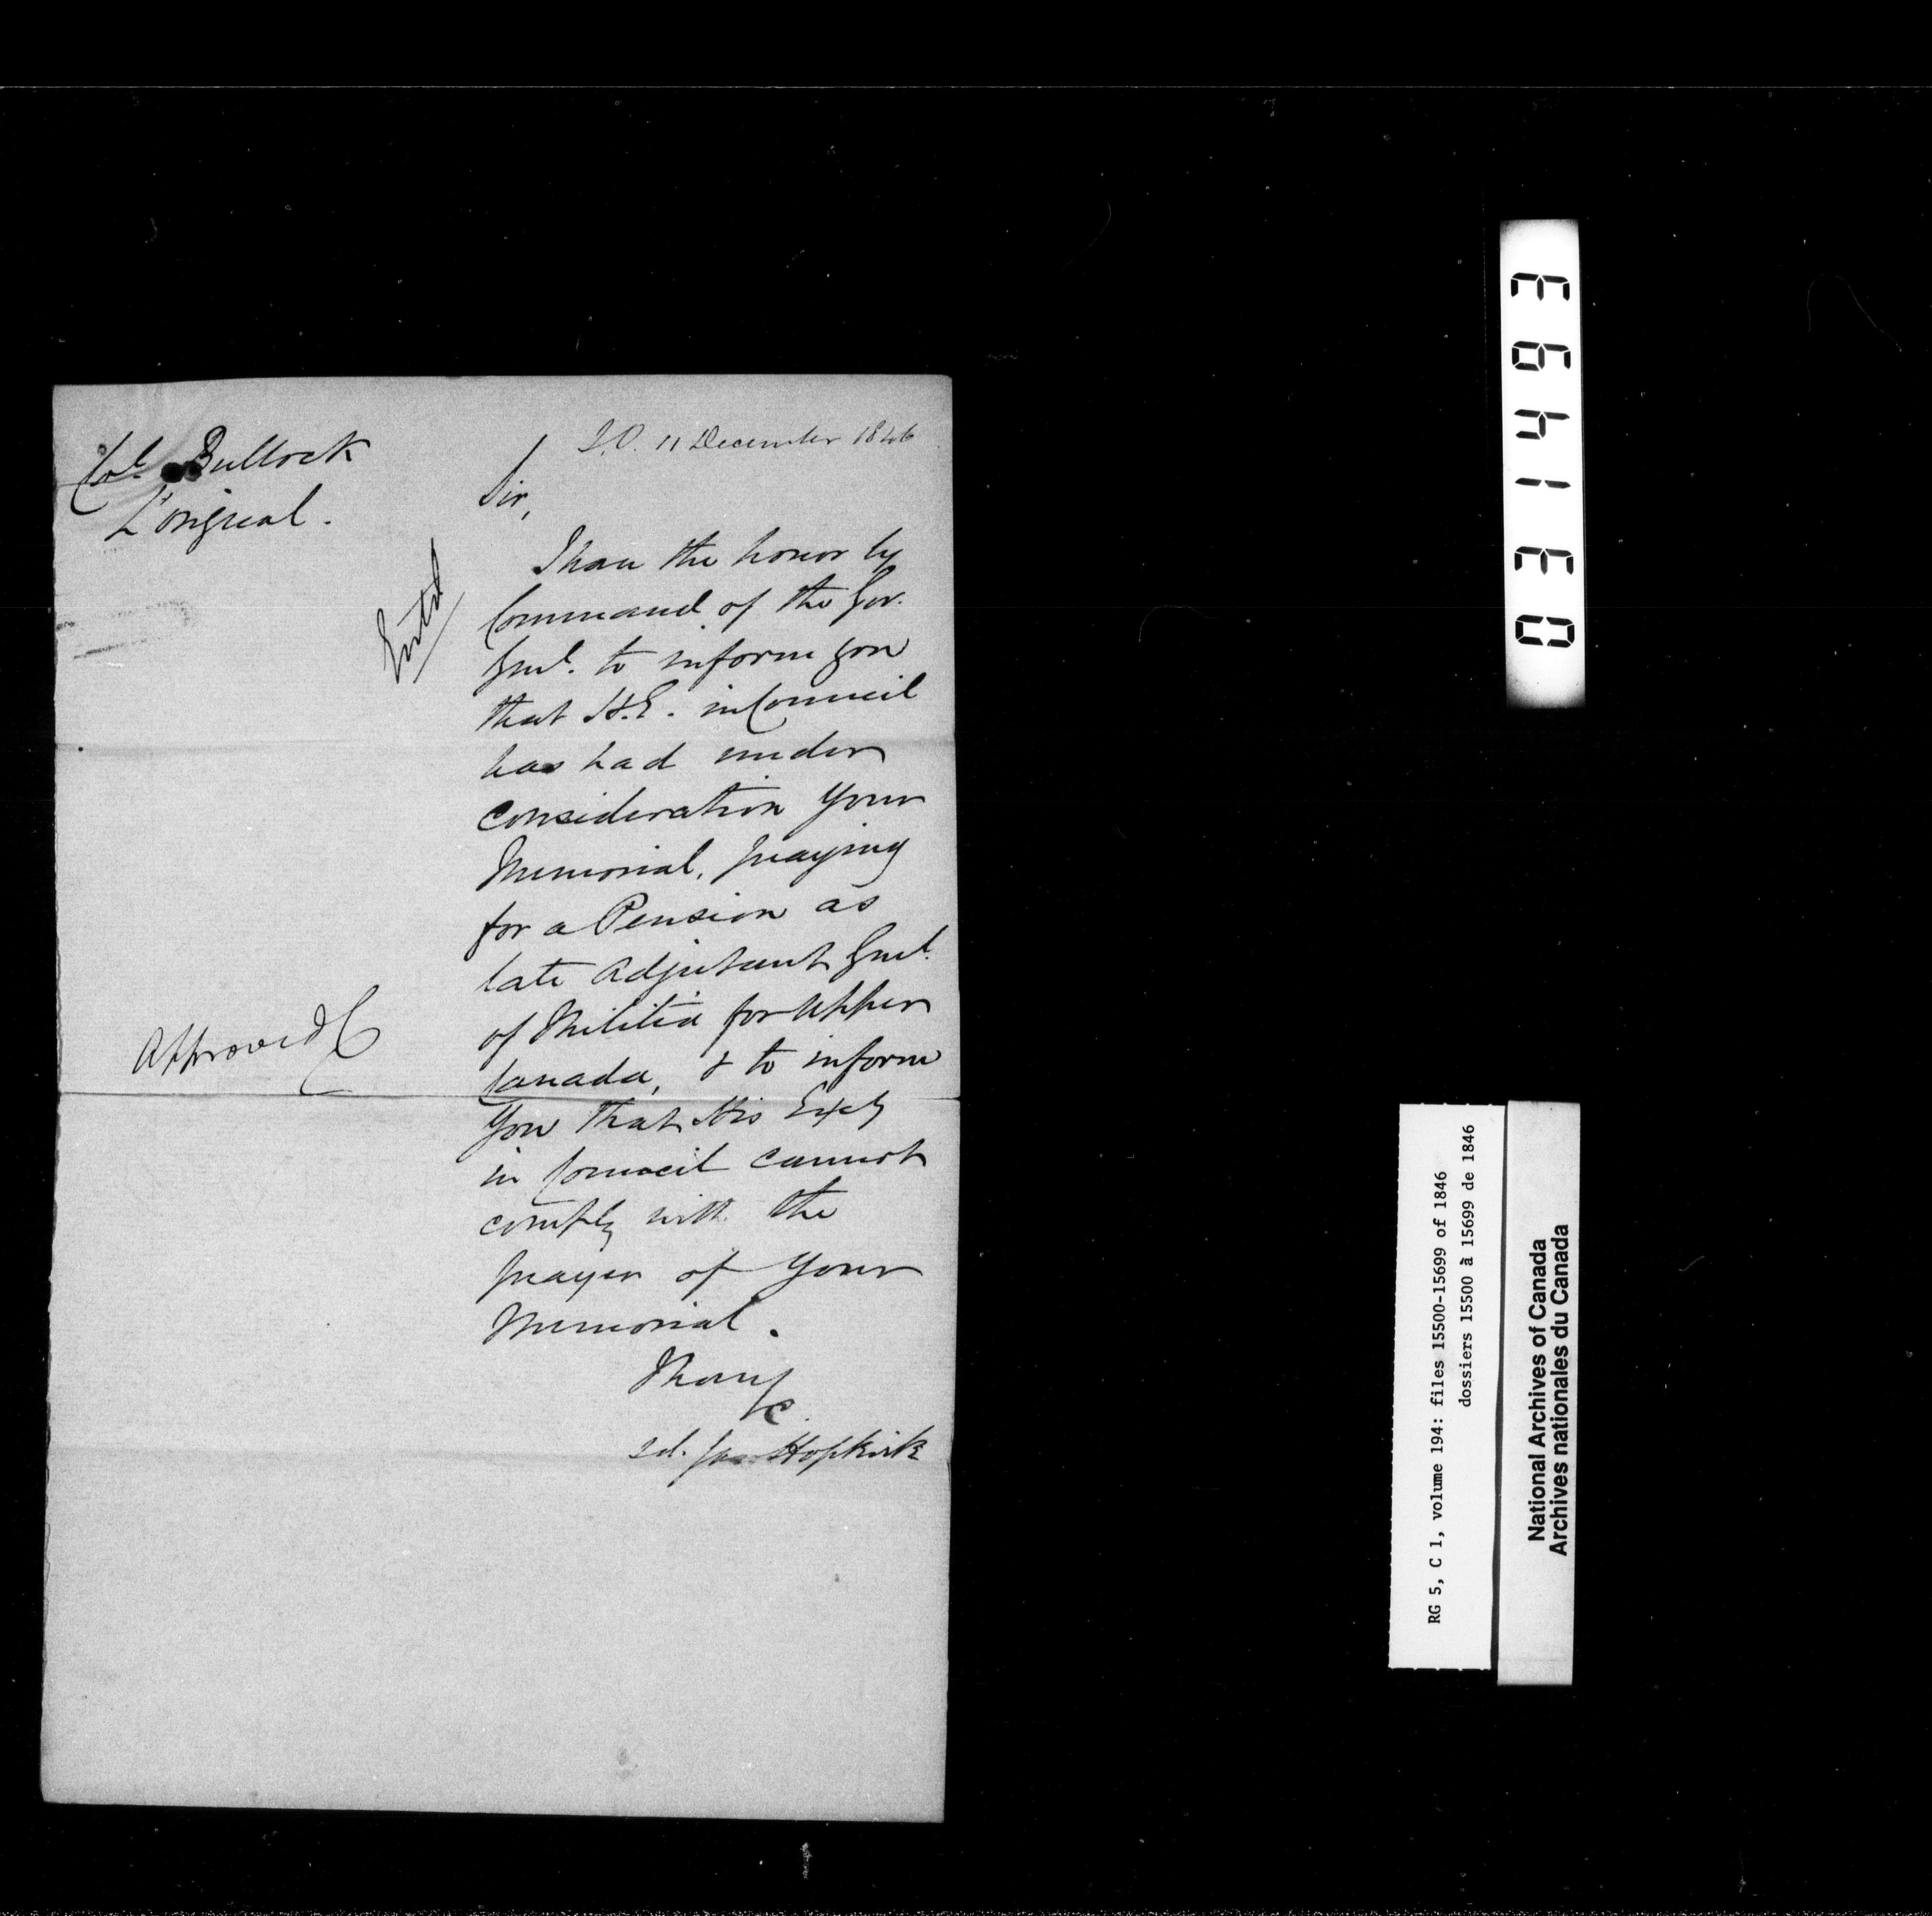 Col Bullock
L'orignal.
S.O. 11 December 1846
Sir,
Entd
I have the honor by
Command of the Gov.
Genl. to inform you
that H.E. in Council
has had under
consideration your
Memorial, praying
for a Pension as
late Adjutant Genl.
of Militia for Upper
Canada, & to inform
you that His Excy
in Council cannot
comply with the
prayer of your
Memorial.
I have &c
Sd. Jas Hopkirk
Approved
031493
RG 5, C 1, volume 194: files 15500-15699 of 1846
dossiers 15500 à 15699 de 1846
National Archives of Canada
Archives nationales du Canada